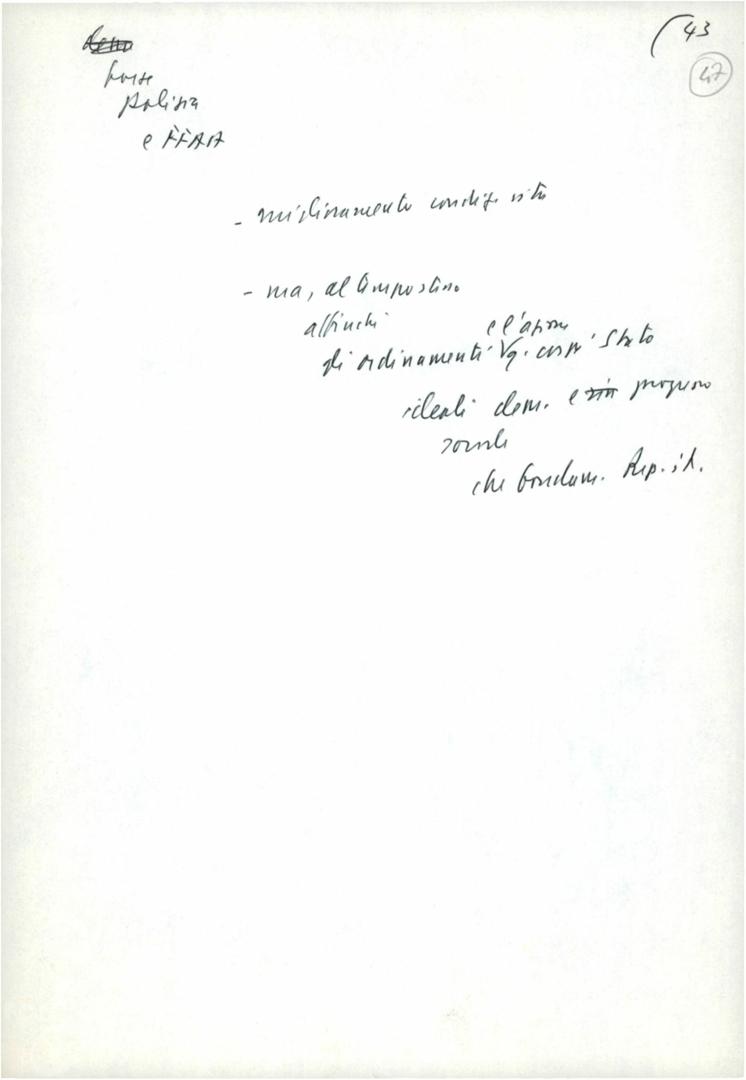 43
47
forse
polizia
e FFAA
- miglioramento condiz. vita
- ma, al tempo stesso
affinché
e l'azione
gli ordinamenti Vg. corpi Stato
ideali dem. e progresso
sociale
che fondam. Rep. it.